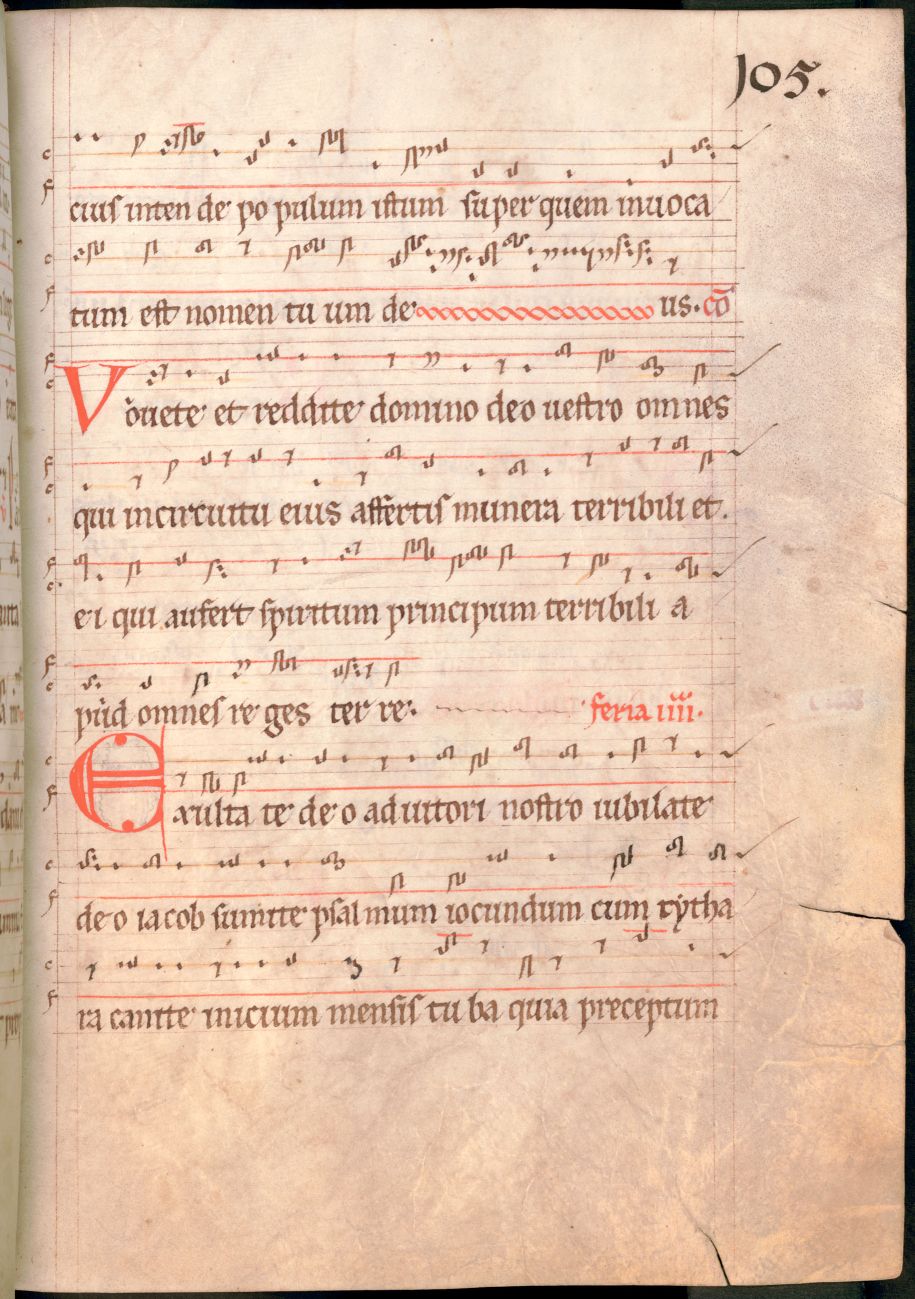 105.
cius inten de po pulum istum super quem inuoca
tum est nomen tu um de us. cō
Vouete et reddite domino deo uestro omnes
qui incircuitu eius affertis munera terribili et.
e i qui aufert spiritum principum terribili a
pud omnes re ges ter re. feria iiii.
Exulta te de o ad iutori nostro iubilate
de o ia cob sumite psal mum iocundum cum cytha
ra canite inicium mensis tu ba quia preceptum